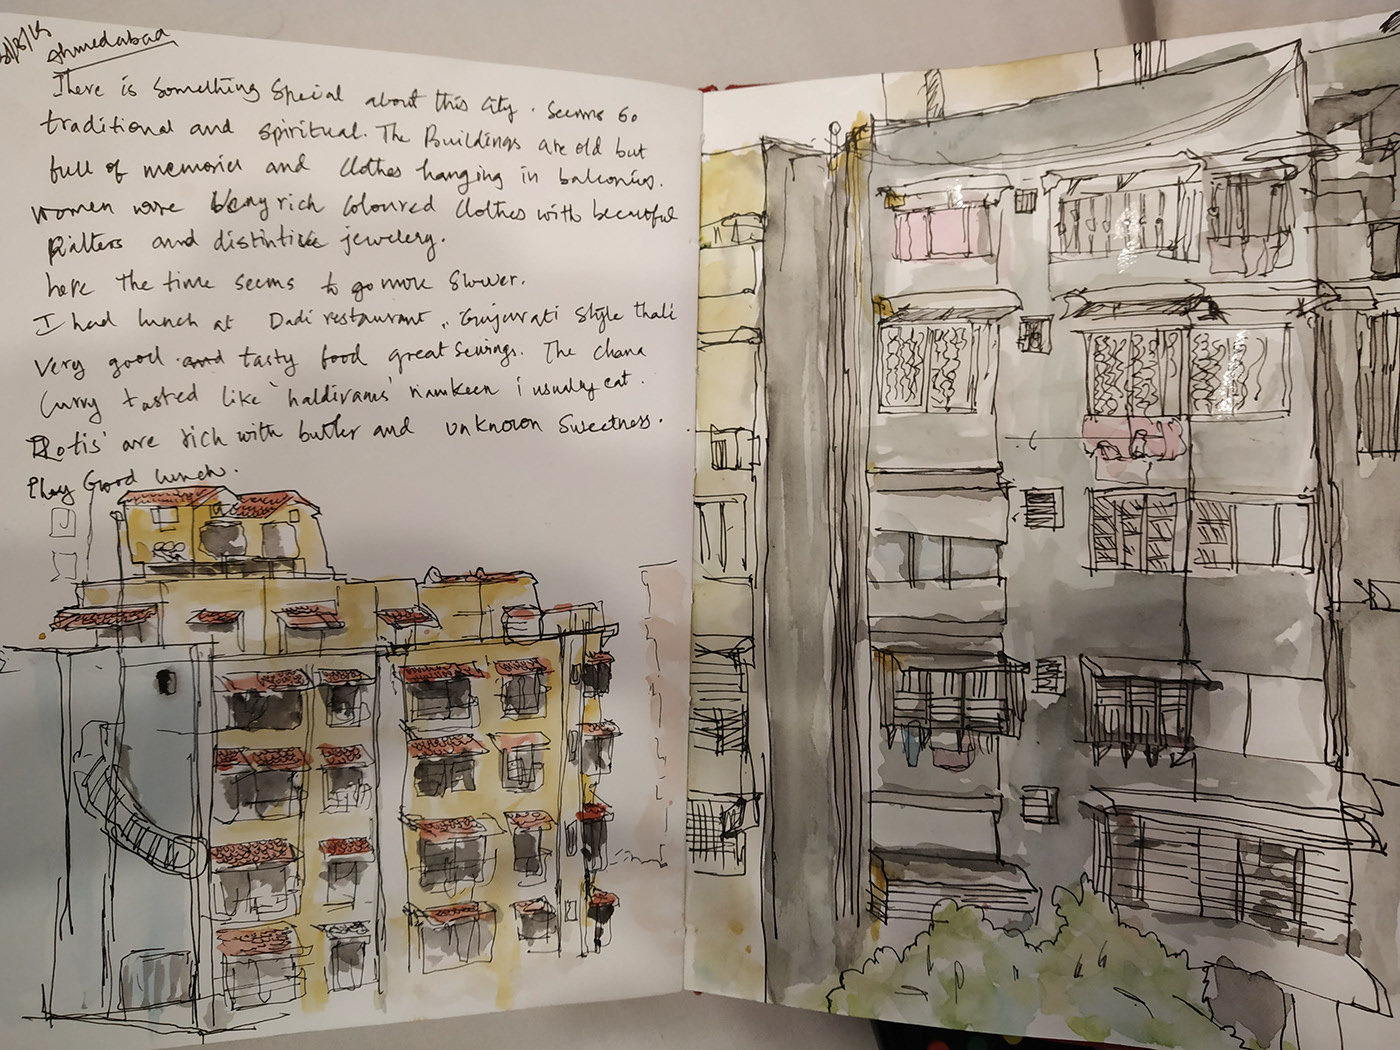 Ahmedabad
There is something special about this city. Seems so
traditional and spiritual. The Buildings are old but
full of memories and clothes hanging in balconies.
women wore rich coloured clothes with beautiful
and distinctive jewelery.
here the time seems to go more slower.
I had lunch at Dadi restaurant, Gujarati style thali
very good and tasty food great servings. The chana
curry tasted like 'haldirams' namkeen i usually eat.
Rotis are rich with butter and unknown sweetness.
Good lunch.